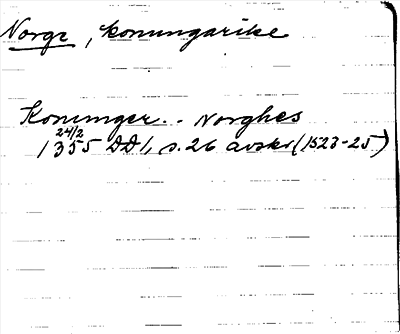 Norge, konungarike
Konunger .. Norghes
24/2
1355 DD 1, s. 26 avskr (1523-25)